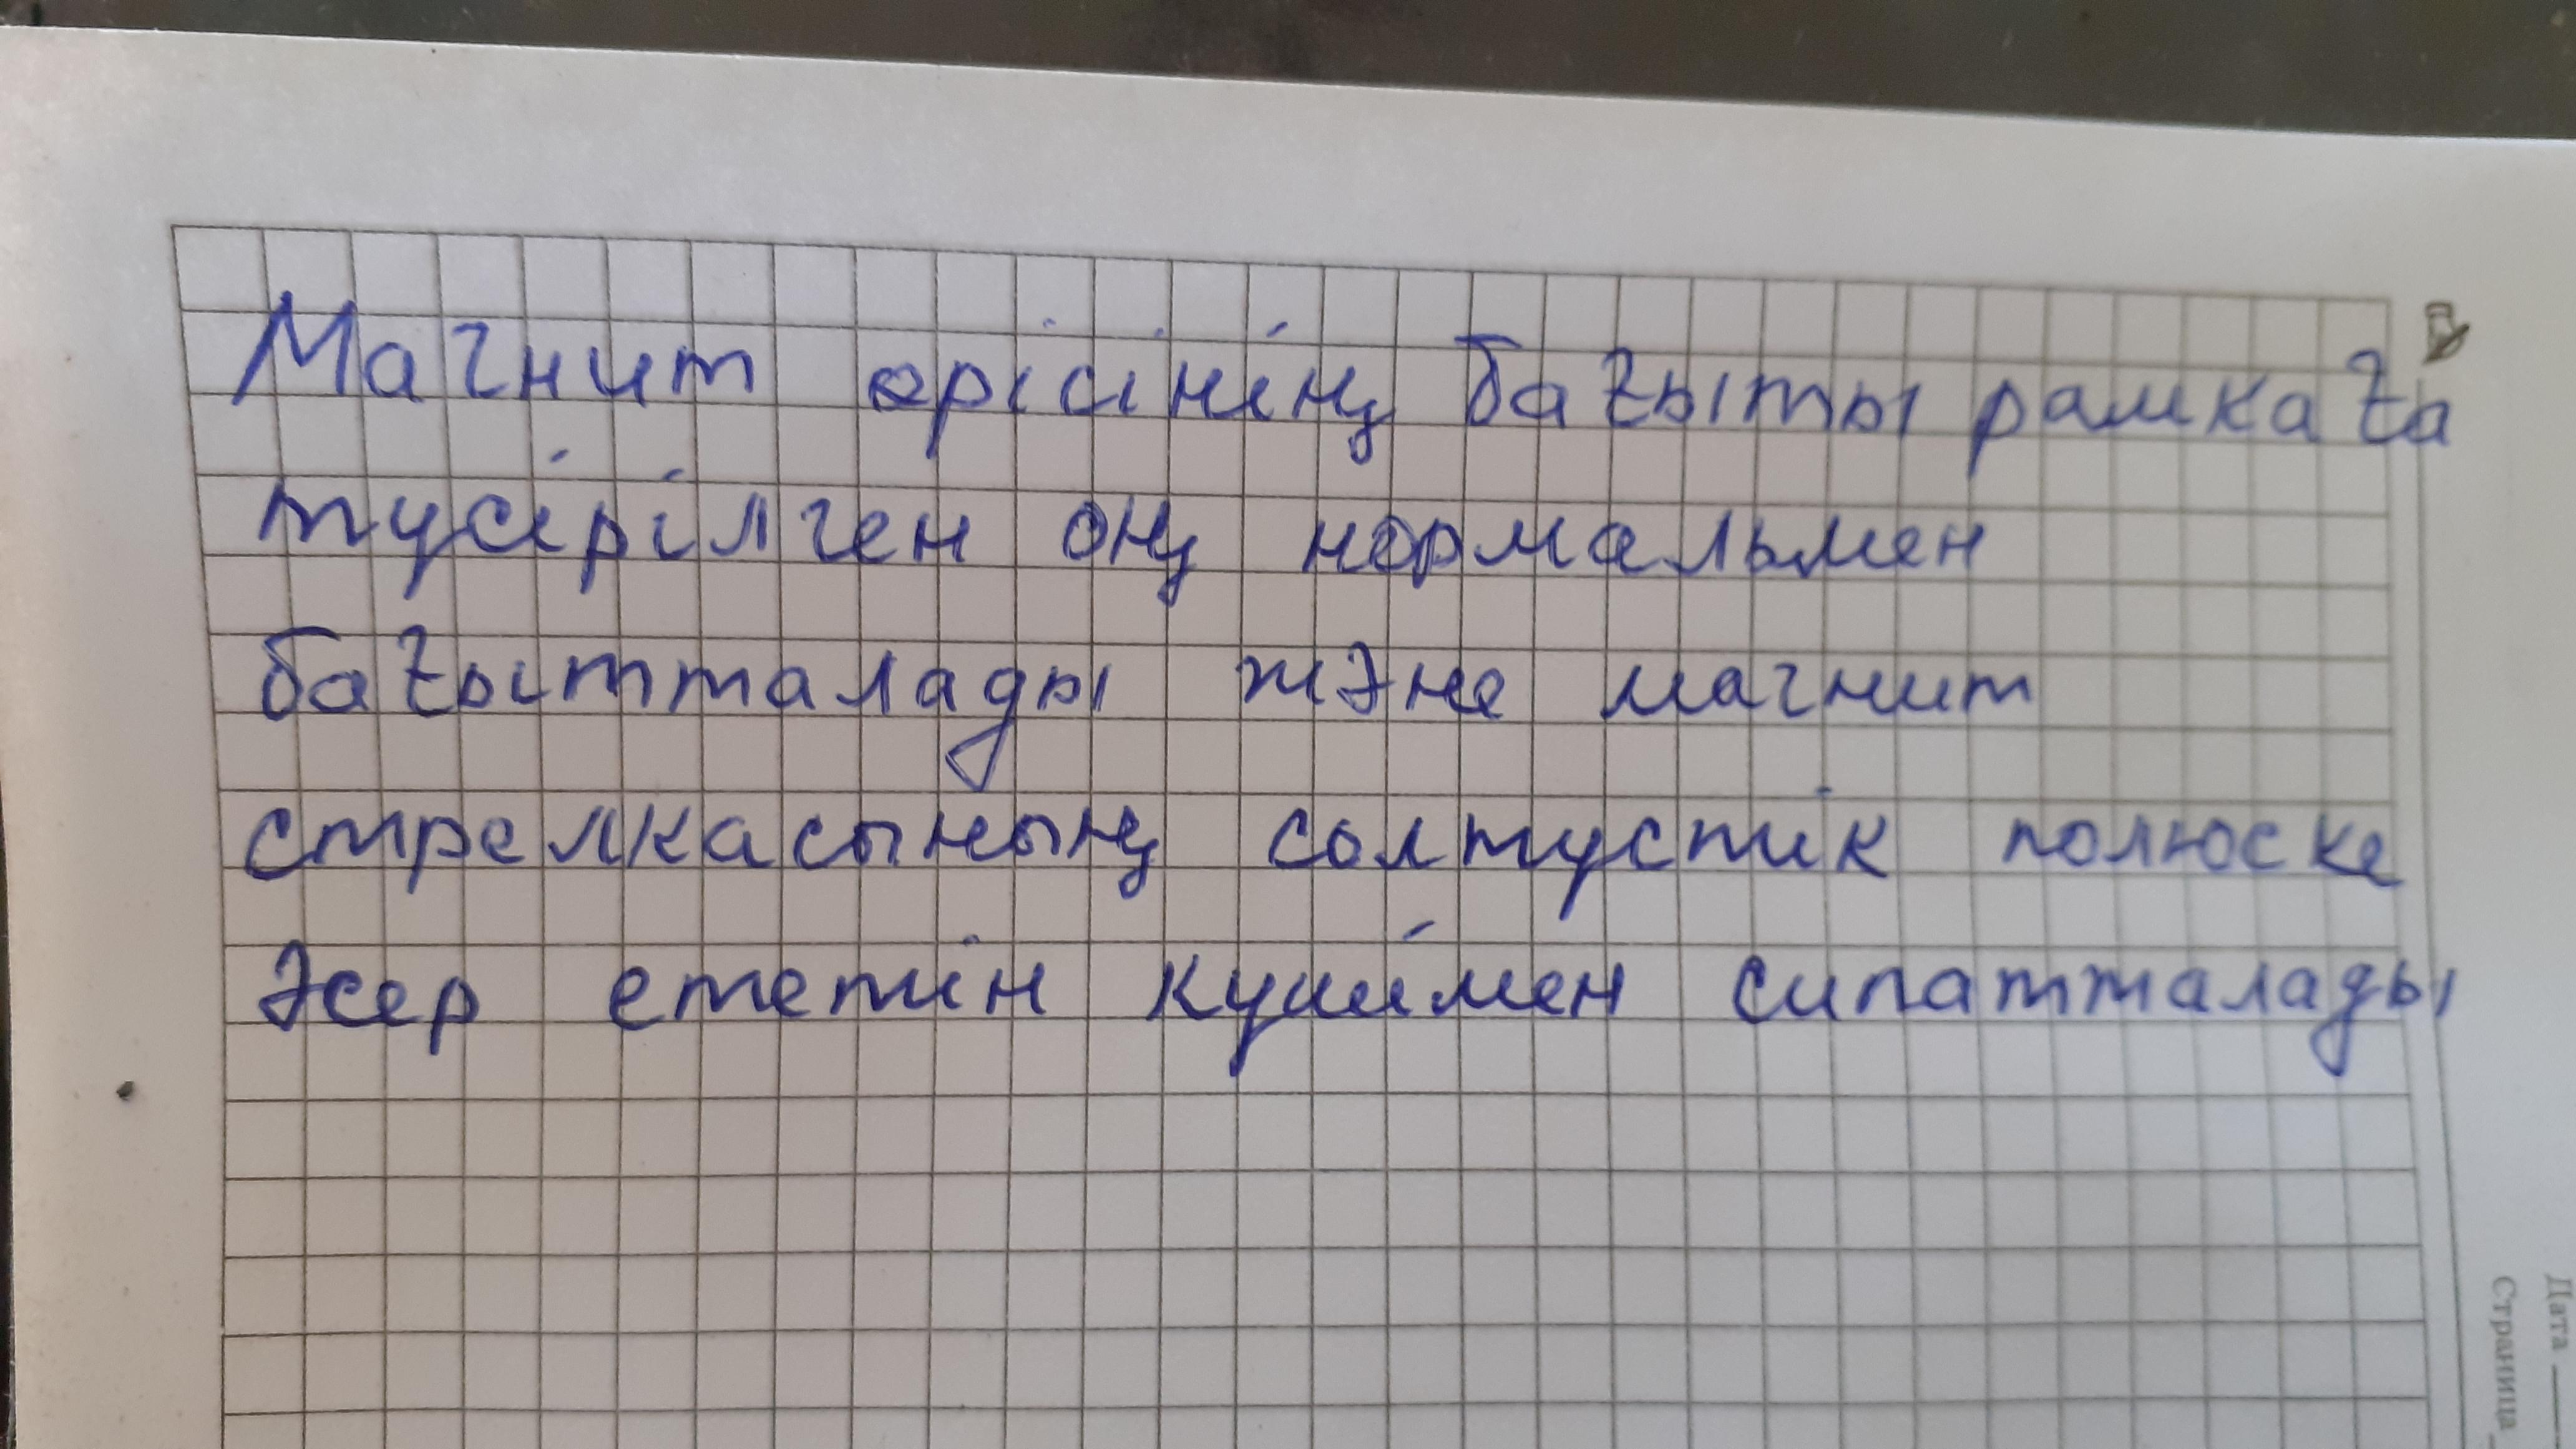 Магнит өрісінің бағыты рамкаға
түсірілген оң нормальмен
бағытталады және магнит
стрелкасының солтустік полюске
әсер ететін күшімен сипатталады
Дата
Страница